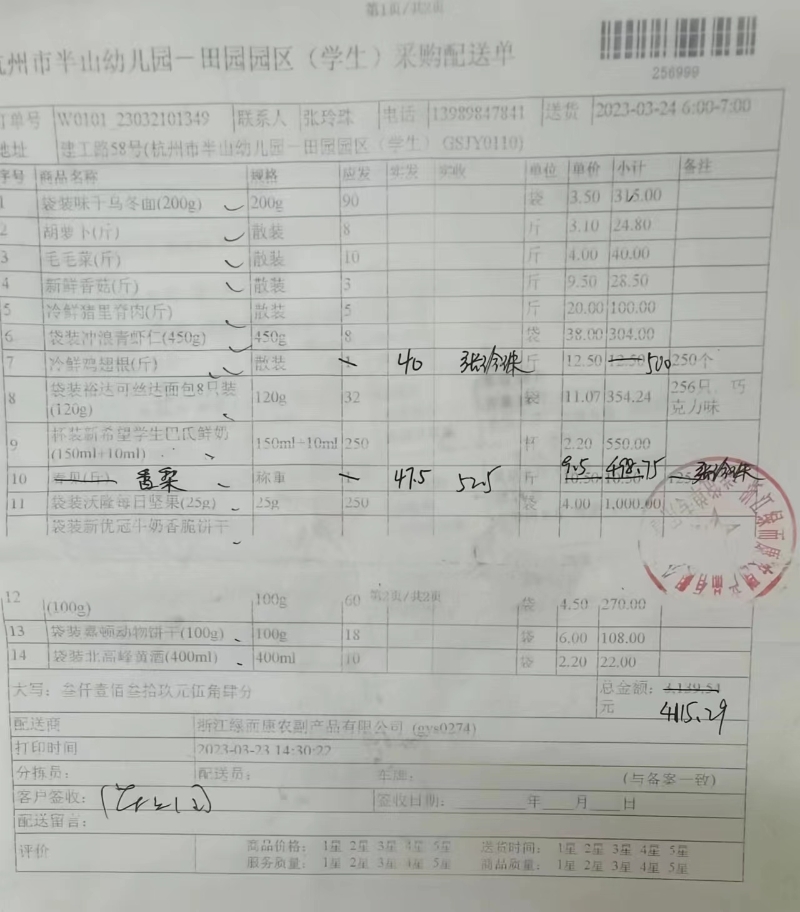 第1页/共2页
州市半山幼儿园-田园园区（学生）采购配送单
256999
订单号 W0101_23032101349 联系人 张玲珠 电话 13989847841 送货 2023-03-24 6:00-7:00
地址 建工路58号(杭州市半山幼儿园-田园园区（学生） GSJY0110)
序号 商品名称 规格 应发 实发 实收 单位 单价 小计 备注
1 袋装味千乌冬面(200g) 200g 90 袋 3.50 315.00
2 胡萝卜(斤) 散装 8 斤 3.10 24.80
3 毛毛菜(斤) 散装 10 斤 4.00 40.00
4 新鲜香菇(斤) 散装 3 斤 9.50 28.50
5 冷鲜猪里脊肉(斤) 散装 5 斤 20.00 100.00
6 袋装冲浪青虾仁(450g) 450g 8 袋 38.00 304.00
7 冷鲜鸡翅根(斤) 散装 40 张玲珠 斤 12.50 12.50 500 250个
8 袋装裕达可丝达面包8只装 120g 32 袋 11.07 354.24 256只，巧
(120g) 克力味
9 杯装新希望学生巴氏鲜奶 150ml+10ml 250 杯 2.20 550.00
(150ml+10ml)
10 香梨 称重 47.5 52.5 斤 9.5 10.50 498.75 10.50 张玲珠
11 袋装沃隆每日坚果(25g) 25g 250 袋 4.00 1,000.00
袋装新优冠牛奶香脆饼干
12 (100g) 100g 60 第2页/共2页 袋 4.50 270.00
13 袋装嘉顿动物饼干(100g) 100g 18 袋 6.00 108.00
14 袋装北高峰黄酒(400ml) 400ml 10 袋 2.20 22.00
大写：叁仟壹佰叁拾玖元伍角肆分 总金额：3,139.54
元 4115.29
配送商 浙江绿而康农副产品有限公司 (gys0274)
打印时间 2023-03-23 14:30:22
分拣员： 配送员： 车牌： (与备案一致)
客户签收： 签收日期：________年____月____日
配送留言：
评价 商品价格： 1星 2星 3星 4星 5星 送货时间： 1星 2星 3星 4星 5星
服务质量： 1星 2星 3星 4星 5星 商品质量： 1星 2星 3星 4星 5星